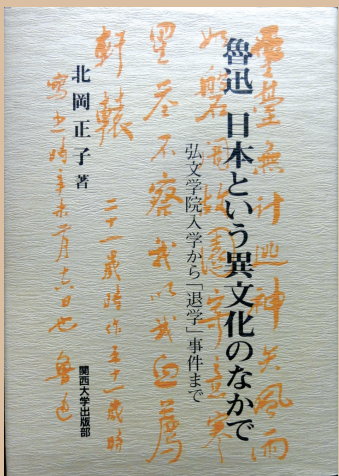 魯迅 日本という異文化のなかで
弘文学院入学から「退学」事件まで
北岡正子 著
関西大学出版部
靈臺無計逃神矢風雨
星荃不察我以我血薦
軒轅
二十一歳時作五十一歳時
寫之時辛未二月十六日也 魯迅